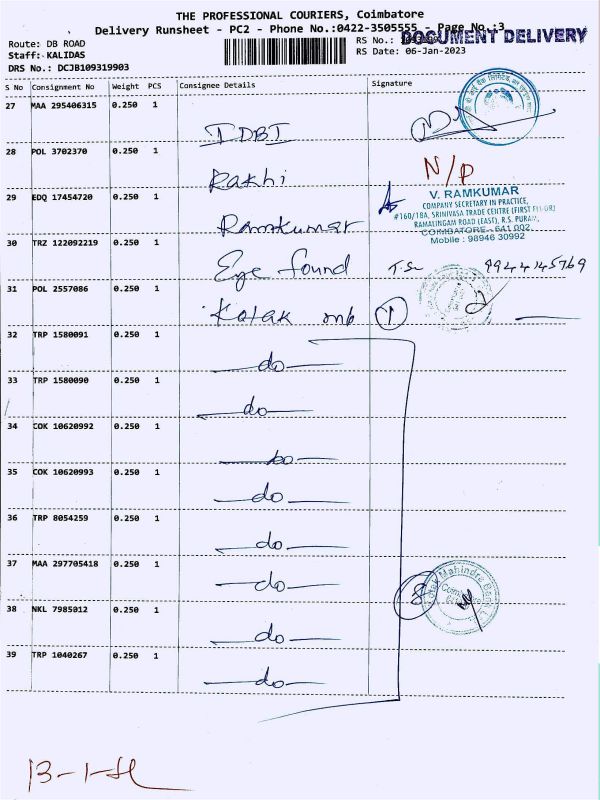 THE PROFESSIONAL COURIERS, Coimbatore
Delivery Runsheet - PC2 - Phone No.:0422-3505555 - Page No.:3
DOCUMENT DELIVERY
Route: DB ROAD
RS No.:
Staff: KALIDAS
RS Date: 06-Jan-2023
DRS No.: DCJB109319903
S No Consignment No Weight PCS Consignee Details Signature
27 MAA 295406315 0.250 1 IDBI
28 POL 3702370 0.250 1 Rakhi N/D
29 EDQ 17454720 0.250 1 Ramkumar
V. RAMKUMAR
COMPANY SECRETARY IN PRACTICE,
#160/18A, SRINIVASA TRADE CENTRE (FIRST FLOOR)
RAMALINGAM ROAD (EAST), R.S. PURAM,
COIMBATORE - 641 002.
Mobile : 98946 30992
30 TRZ 122092219 0.250 1 Eye found 9944145769
31 POL 2557086 0.250 1 Kotak mb 1
32 TRP 1580091 0.250 1 do
33 TRP 1580090 0.250 1 do
34 COK 10620992 0.250 1 do
35 COK 10620993 0.250 1 do
36 TRP 8054259 0.250 1 do
37 MAA 297705418 0.250 1 do
38 NKL 7985012 0.250 1 do 8
Kotak Mahindra Bank
39 TRP 1040267 0.250 1 do